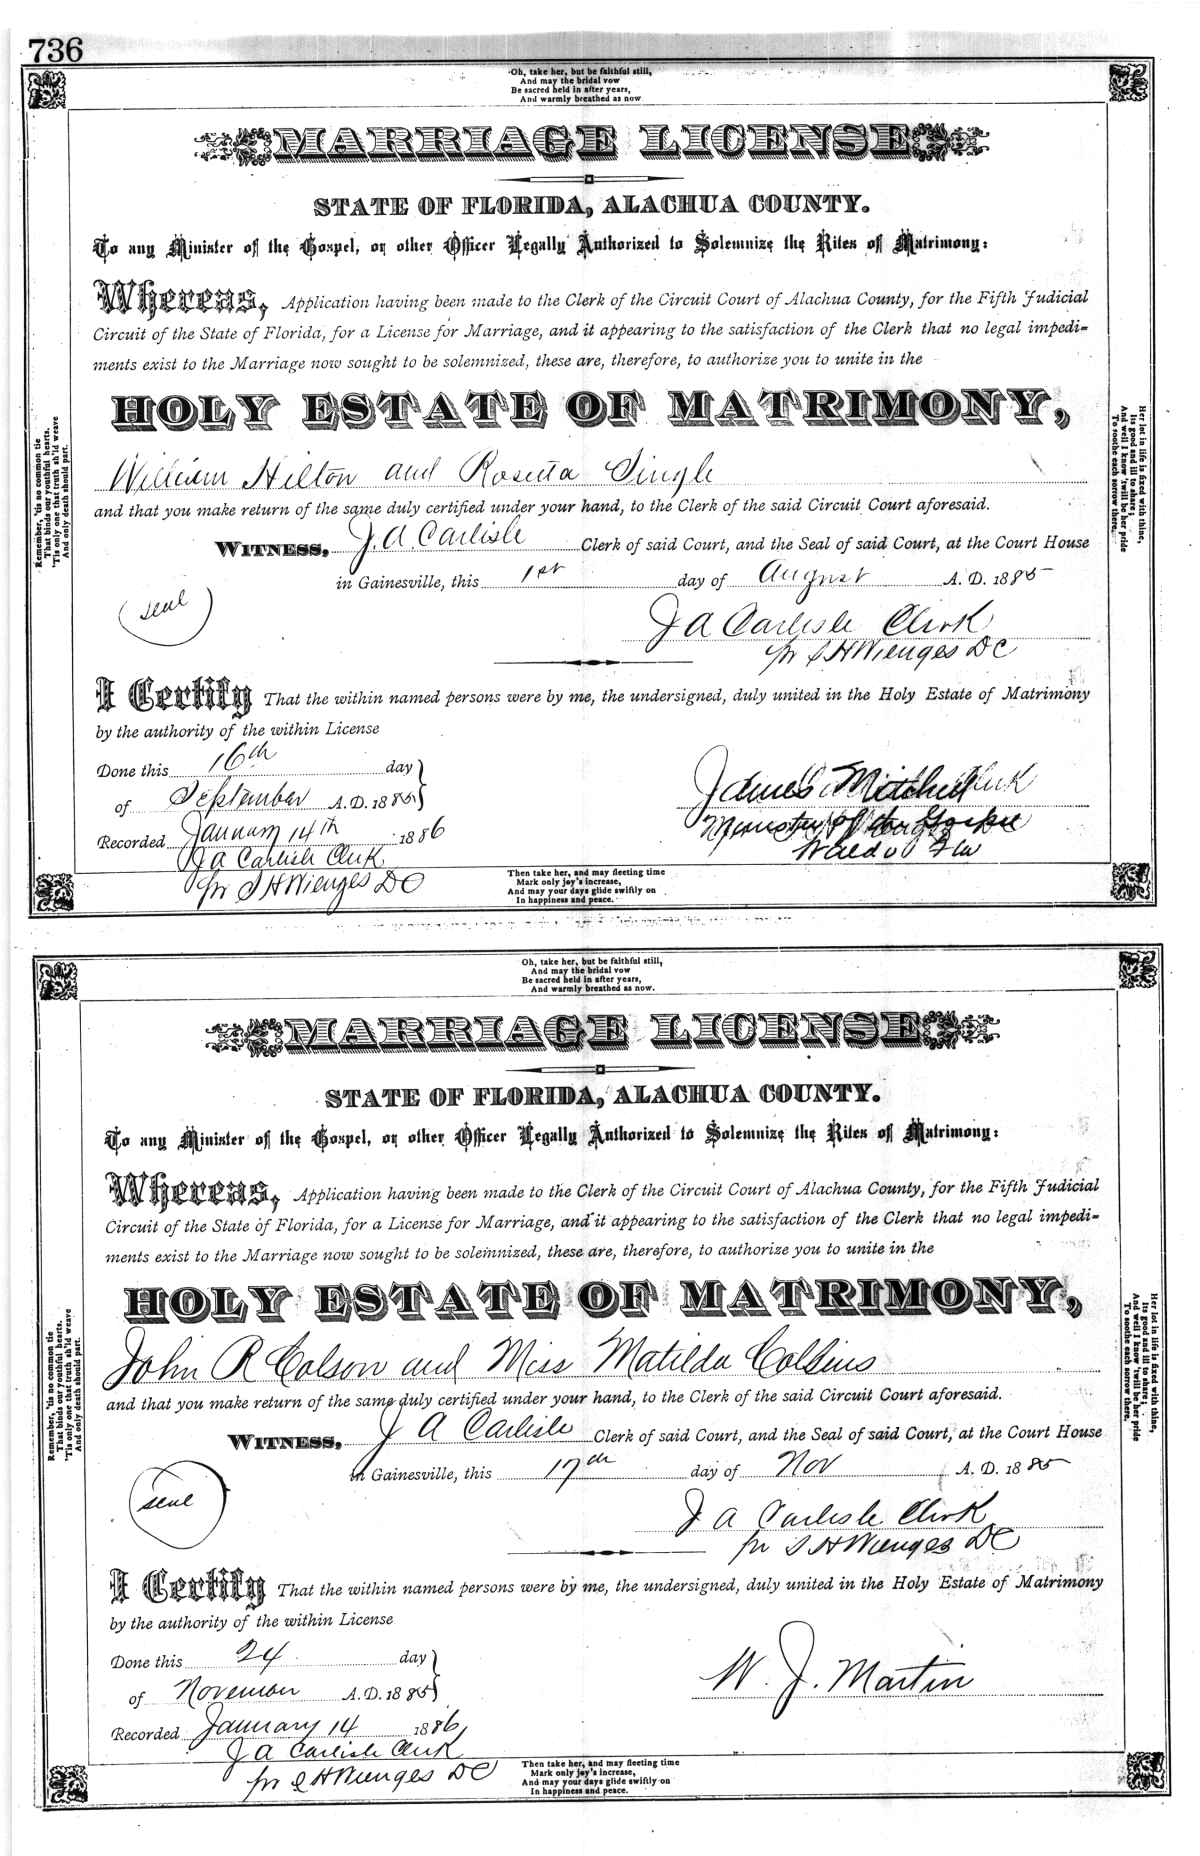 736
Oh, take her, but be faithful still,
And may the bridal vow
Be sacred held in after years,
And warmly breathed as now
MARRIAGE LICENSE
STATE OF FLORIDA, ALACHUA COUNTY.
To any Minister of the Gospel, or other Officer Legally Authorized to Solemnize the Rites of Matrimony:
Whereas, Application having been made to the Clerk of the Circuit Court of Alachua County, for the Fifth Judicial
Circuit of the State of Florida, for a License for Marriage, and it appearing to the satisfaction of the Clerk that no legal impedi-
ments exist to the Marriage now sought to be solemnized, these are, therefore, to authorize you to unite in the
HOLY ESTATE OF MATRIMONY,
William Hilton and Rosetta Single
and that you make return of the same duly certified under your hand, to the Clerk of the said Circuit Court aforesaid.
WITNESS, J. A. Carlisle Clerk of said Court, and the Seal of said Court, at the Court House
in Gainesville, this 1st day of August A. D. 1885
(seal)
J A Carlisle Clerk
pr S H Wienges DC
I Certify That the within named persons were by me, the undersigned, duly united in the Holy Estate of Matrimony
by the authority of the within License
Done this 16th day
of September A. D. 1885
Recorded January 14th 1886
J A Carlisle Clerk
pr S H Wienges DC
James Mitchell
Minister of the Gospel
Waldo Fla
Remember, 'tis no common tie
That binds our youthful hearts.
'Tis only one that truth sh'ld weave
And only death should part.
Her lot in life is fixed with thine,
Its good and ill to share;
And well I know 'twill be her pride
To soothe each sorrow there.
Then take her, and may fleeting time
Mark only joy's increase,
And may your days glide swiftly on
In happiness and peace.
Oh, take her, but be faithful still,
And may the bridal vow
Be sacred held in after years,
And warmly breathed as now.
MARRIAGE LICENSE
STATE OF FLORIDA, ALACHUA COUNTY.
To any Minister of the Gospel, or other Officer Legally Authorized to Solemnize the Rites of Matrimony:
Whereas, Application having been made to the Clerk of the Circuit Court of Alachua County, for the Fifth Judicial
Circuit of the State of Florida, for a License for Marriage, and it appearing to the satisfaction of the Clerk that no legal impedi-
ments exist to the Marriage now sought to be solemnized, these are, therefore, to authorize you to unite in the
HOLY ESTATE OF MATRIMONY,
John R Colson and Miss Matilda Collins
and that you make return of the same duly certified under your hand, to the Clerk of the said Circuit Court aforesaid.
WITNESS, J A Carlisle Clerk of said Court, and the Seal of said Court, at the Court House
in Gainesville, this 17th day of Nov A. D. 1885
seal
J A Carlisle Clerk
pr S H Wienges DC
I Certify That the within named persons were by me, the undersigned, duly united in the Holy Estate of Matrimony
by the authority of the within License
Done this 24 day
of November A. D. 1885
Recorded January 14 1886
J A Carlisle Clerk
pr S H Wienges DC
W. J. Martin
Remember, 'tis no common tie
That binds our youthful hearts.
'Tis only one that truth sh'ld weave
And only death should part.
Her lot in life is fixed with thine,
Its good and ill to share;
And well I know 'twill be her pride
To soothe each sorrow there.
Then take her, and may fleeting time
Mark only joy's increase,
And may your days glide swiftly on
In happiness and peace.